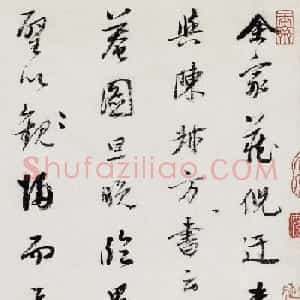 余家藏倪迂
與陳叔方書云
菴圖旦晚
以觀 而
Shufaziliao.com